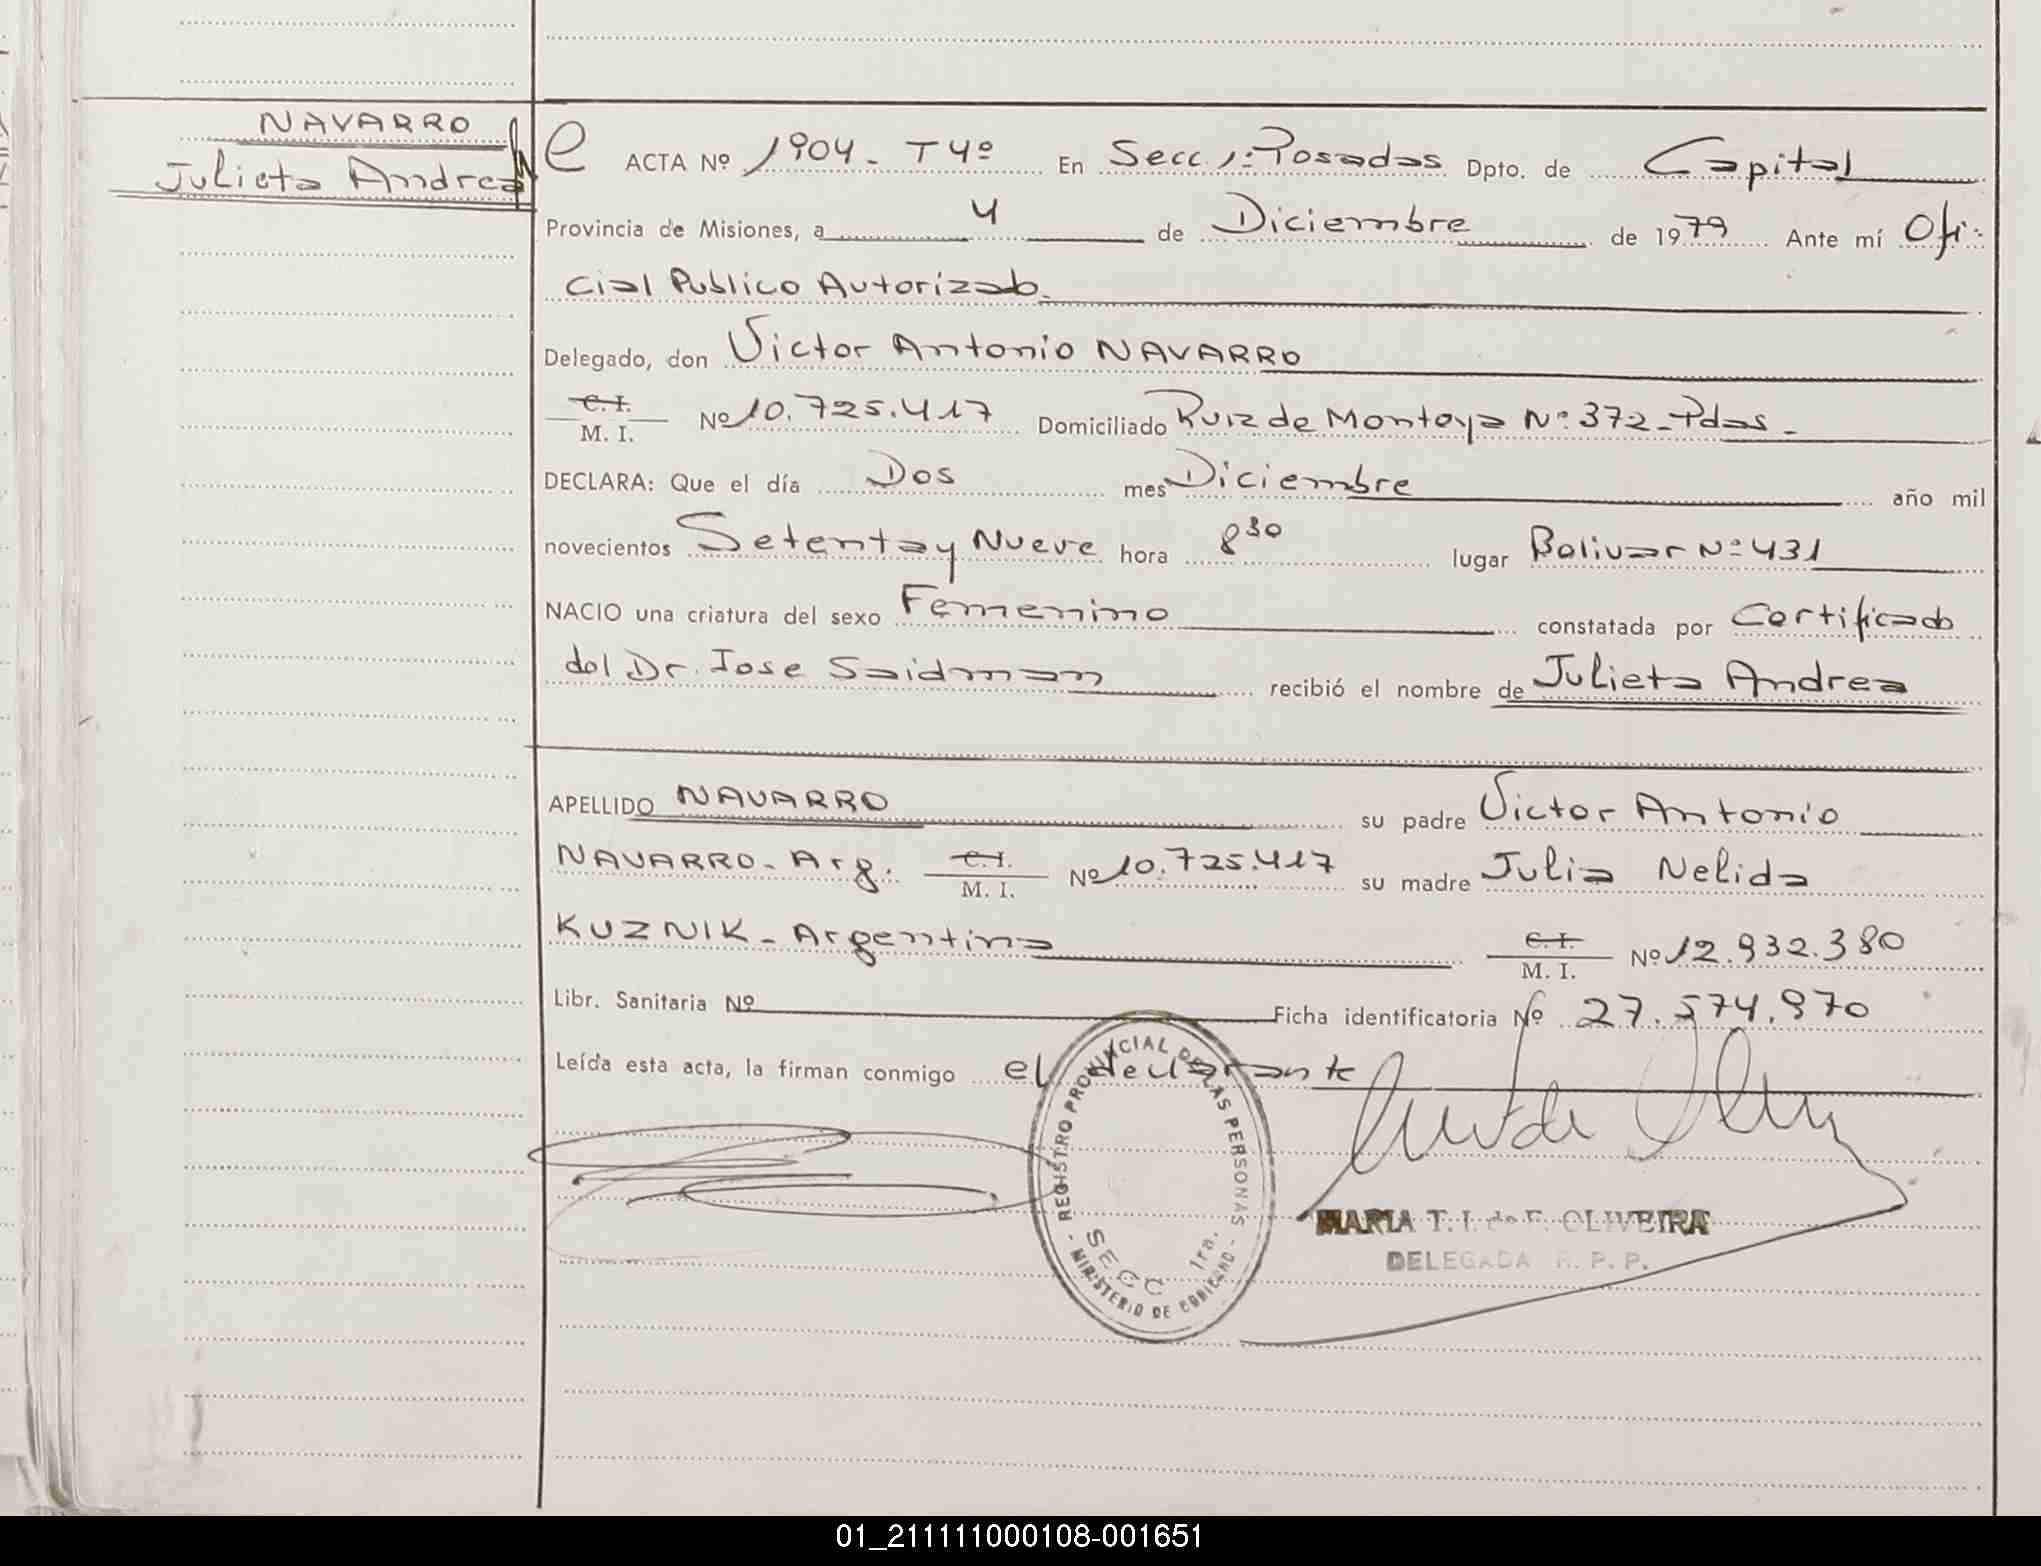 NAVARRO
Julieta Andrea
ACTA Nº 1904 - T4º En Secc. 1: Posadas Dpto. de Capital
Provincia de Misiones, a 4 de Diciembre de 1979 Ante mí Ofi-
cial Publico Autorizado.
Delegado, don Victor Antonio NAVARRO
C. I.
M. I. Nº 10.725.417 Domiciliado Ruiz de Montoya Nº 372 - Pdas -
DECLARA: Que el día Dos mes Diciembre año mil
novecientos Setenta y Nueve hora 8 30 lugar Bolivar Nº 431
NACIO una criatura del sexo Femenino constatada por Certificado
del Dr. Jose Saidman recibió el nombre de Julieta Andrea
APELLIDO NAVARRO su padre Victor Antonio
NAVARRO - Arg. C. I. / M. I. Nº 10.725.417 su madre Julia Nelida
KUZNIK - Argentina C. I. / M. I. Nº 12.932.380
Libr. Sanitaria Nº Ficha identificatoria Nº 27.574.970
Leída esta acta, la firman conmigo el declarante
REGISTRO PROVINCIAL DE LAS PERSONAS
SECC 1ra.
- MINISTERIO DE GOBIERNO -
MARIA T. I. de F. OLIVEIRA
DELEGADA R. P. P.
01_211111000108-001651